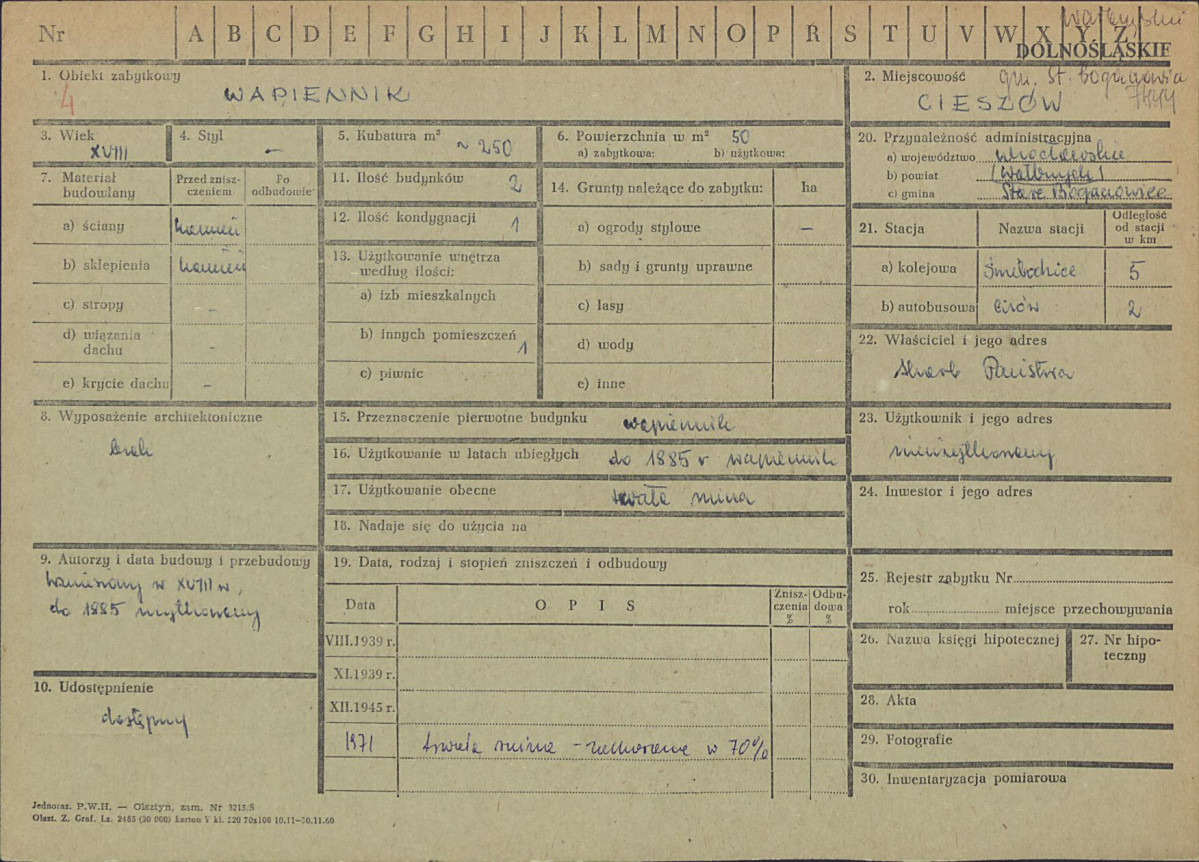 Nr A B C D E F G H I J K L M N O P R S T U V W X Y Z
DOLNOŚLĄSKIE
1. Obiekt zabytkowy
4
WAPIENNIK
2. Miejscowość gm. St. Bogaczowice
CIESZÓW
3. Wiek
XVIII
4. Styl
–
5. Kubatura m³
~ 250
6. Powierzchnia w m² 50
a) zabytkowa: b) użytkowa:
7. Materiał budowlany
Przed zniszczeniem
Po odbudowie
a) ściany kamień
b) sklepienia kamień
c) stropy –
d) wiązania dachu –
e) krycie dachu –
8. Wyposażenie architektoniczne
brak
9. Autorzy i data budowy i przebudowy
wzniesiony w XVIII w,
do 1885 użytkowany
10. Udostępnienie
dostępny
11. Ilość budynków 2
12. Ilość kondygnacji 1
13. Użytkowanie wnętrza
według ilości:
a) izb mieszkalnych
b) innych pomieszczeń
1
c) piwnic
14. Grunty należące do zabytku: ha
a) ogrody stylowe –
b) sady i grunty uprawne
c) lasy
d) wody
e) inne
15. Przeznaczenie pierwotne budynku wapiennik
16. Użytkowanie w latach ubiegłych do 1885 r wapiennik
17. Użytkowanie obecne trwała ruina
18. Nadaje się do użycia na
19. Data, rodzaj i stopień zniszczeń i odbudowy
Data
O P I S
Zniszczenia %
Odbudowa %
VIII.1939 r.
XI.1939 r.
XII.1945 r.
1971 trwała ruina – zachowana w 70%
20. Przynależność administracyjna
a) województwo wrocławskie
b) powiat (Wałbrzych)
c) gmina Stare Bogaczowice
21. Stacja
Nazwa stacji
Odległość od stacji w km
a) kolejowa 5
b) autobusowa 2
22. Właściciel i jego adres
Skarb Państwa
23. Użytkownik i jego adres
nieużytkowany
24. Inwestor i jego adres
25. Rejestr zabytku Nr
rok miejsce przechowywania
26. Nazwa księgi hipotecznej
27. Nr hipoteczny
28. Akta
29. Fotografie
30. Inwentaryzacja pomiarowa
Jednoraz. P.W.H. — Olsztyn, zam. Nr 3215/S
Olszt. Z. Graf. Lz. 2485 (30 000) karton V kl. 220 70x100 10.11—30.11.60